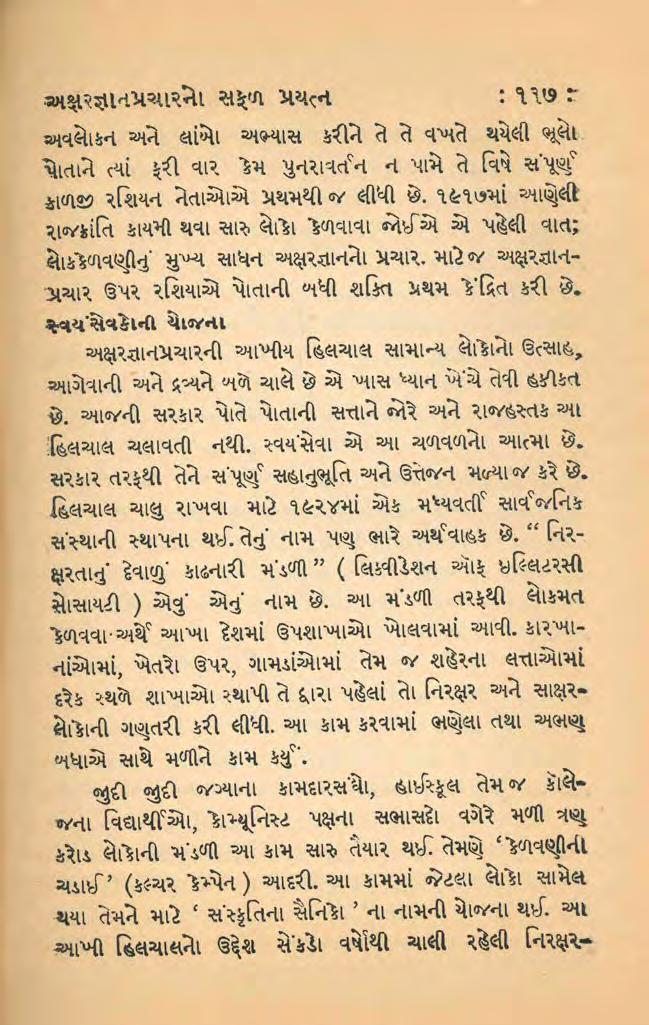 અક્ષરજ્ઞાનપ્રચારનો સફળ પ્રયત્ન : ૧૧૭ :
અવલોકન અને લાંબો અભ્યાસ કરીને તે તે વખતે થયેલી ભૂલો
પોતાને ત્યાં ફરી વાર કેમ પુનરાવર્તન ન પામે તે વિષે સંપૂર્ણ
કાળજી રશિયન નેતાઓએ પ્રથમથી જ લીધી છે. ૧૯૧૭માં આણેલી
રાજક્રાંતિ કાયમી થવા સારુ લોકો કેળવાવા જોઈએ એ પહેલી વાત;
લોકકેળવણીનું મુખ્ય સાધન અક્ષરજ્ઞાનનો પ્રચાર. માટેજ અક્ષરજ્ઞાન-
પ્રચાર ઉપર રશિયાએ પોતાની બધી શક્તિ પ્રથમ કેંદ્રિત કરી છે.
સ્વયંસેવકોની યોજના
અક્ષરજ્ઞાનપ્રચારની આખીય હિલચાલ સામાન્ય લોકોનો ઉત્સાહ,
આગેવાની અને દ્રવ્યને બળે ચાલે છે એ ખાસ ધ્યાન ખેંચે તેવી હકીકત
છે. આજની સરકાર પોતે પોતાની સત્તાને જોરે અને રાજહસ્તક આ
હિલચાલ ચલાવતી નથી. સ્વયંસેવા એ આ ચળવળનો આત્મા છે.
સરકાર તરફથી તેને સંપૂર્ણ સહાનુભૂતિ અને ઉત્તેજન મળ્યા જ કરે છે.
હિલચાલ ચાલુ રાખવા માટે ૧૯૨૪માં એક મધ્યવર્તી સાર્વજનિક
સંસ્થાની સ્થાપના થઈ. તેનું નામ પણ ભારે અર્થવાહક છે. “ નિર-
ક્ષરતાનું દેવાળું કાઢનારી મંડળી ” ( લિક્વીડેશન ઑફ ઇલ્લિટરસી
સોસાયટી ) એવું એનું નામ છે. આ મંડળી તરફથી લોકમત
કેળવવા અર્થે આખા દેશમાં ઉપશાખાઓ ખોલવામાં આવી. કારખા-
નાંઓમાં, ખેતરો ઉપર, ગામડાંઓમાં તેમ જ શહેરના લત્તાઓમાં
દરેક સ્થળે શાખાઓ સ્થાપી તે દ્વારા પહેલાં તો નિરક્ષર અને સાક્ષર-
લોકોની ગણતરી કરી લીધી. આ કામ કરવામાં ભણેલા તથા અભણ
બધાએ સાથે મળીને કામ કર્યું.
જુદી જુદી જગ્યાના કામદારસંઘો, હાઈસ્કૂલ તેમ જ કૉલે-
જના વિદ્યાર્થીઓ, કોમ્યૂનિસ્ટ પક્ષના સભાસદો વગેરે મળી ત્રણ
કરોડ લોકોની મંડળી આ કામ સારુ તૈયાર થઈ. તેમણે ‘ કેળવણીની
ચડાઈ ’ (કલ્ચર કેમ્પેન ) આદરી. આ કામમાં જેટલા લોકો સામેલ
થયા તેમને માટે ‘ સંસ્કૃતિના સૈનિકો ’ ના નામની યોજના થઈ. આ
આખી હિલચાલનો ઉદ્દેશ સેંકડો વર્ષોથી ચાલી રહેલી નિરક્ષર-